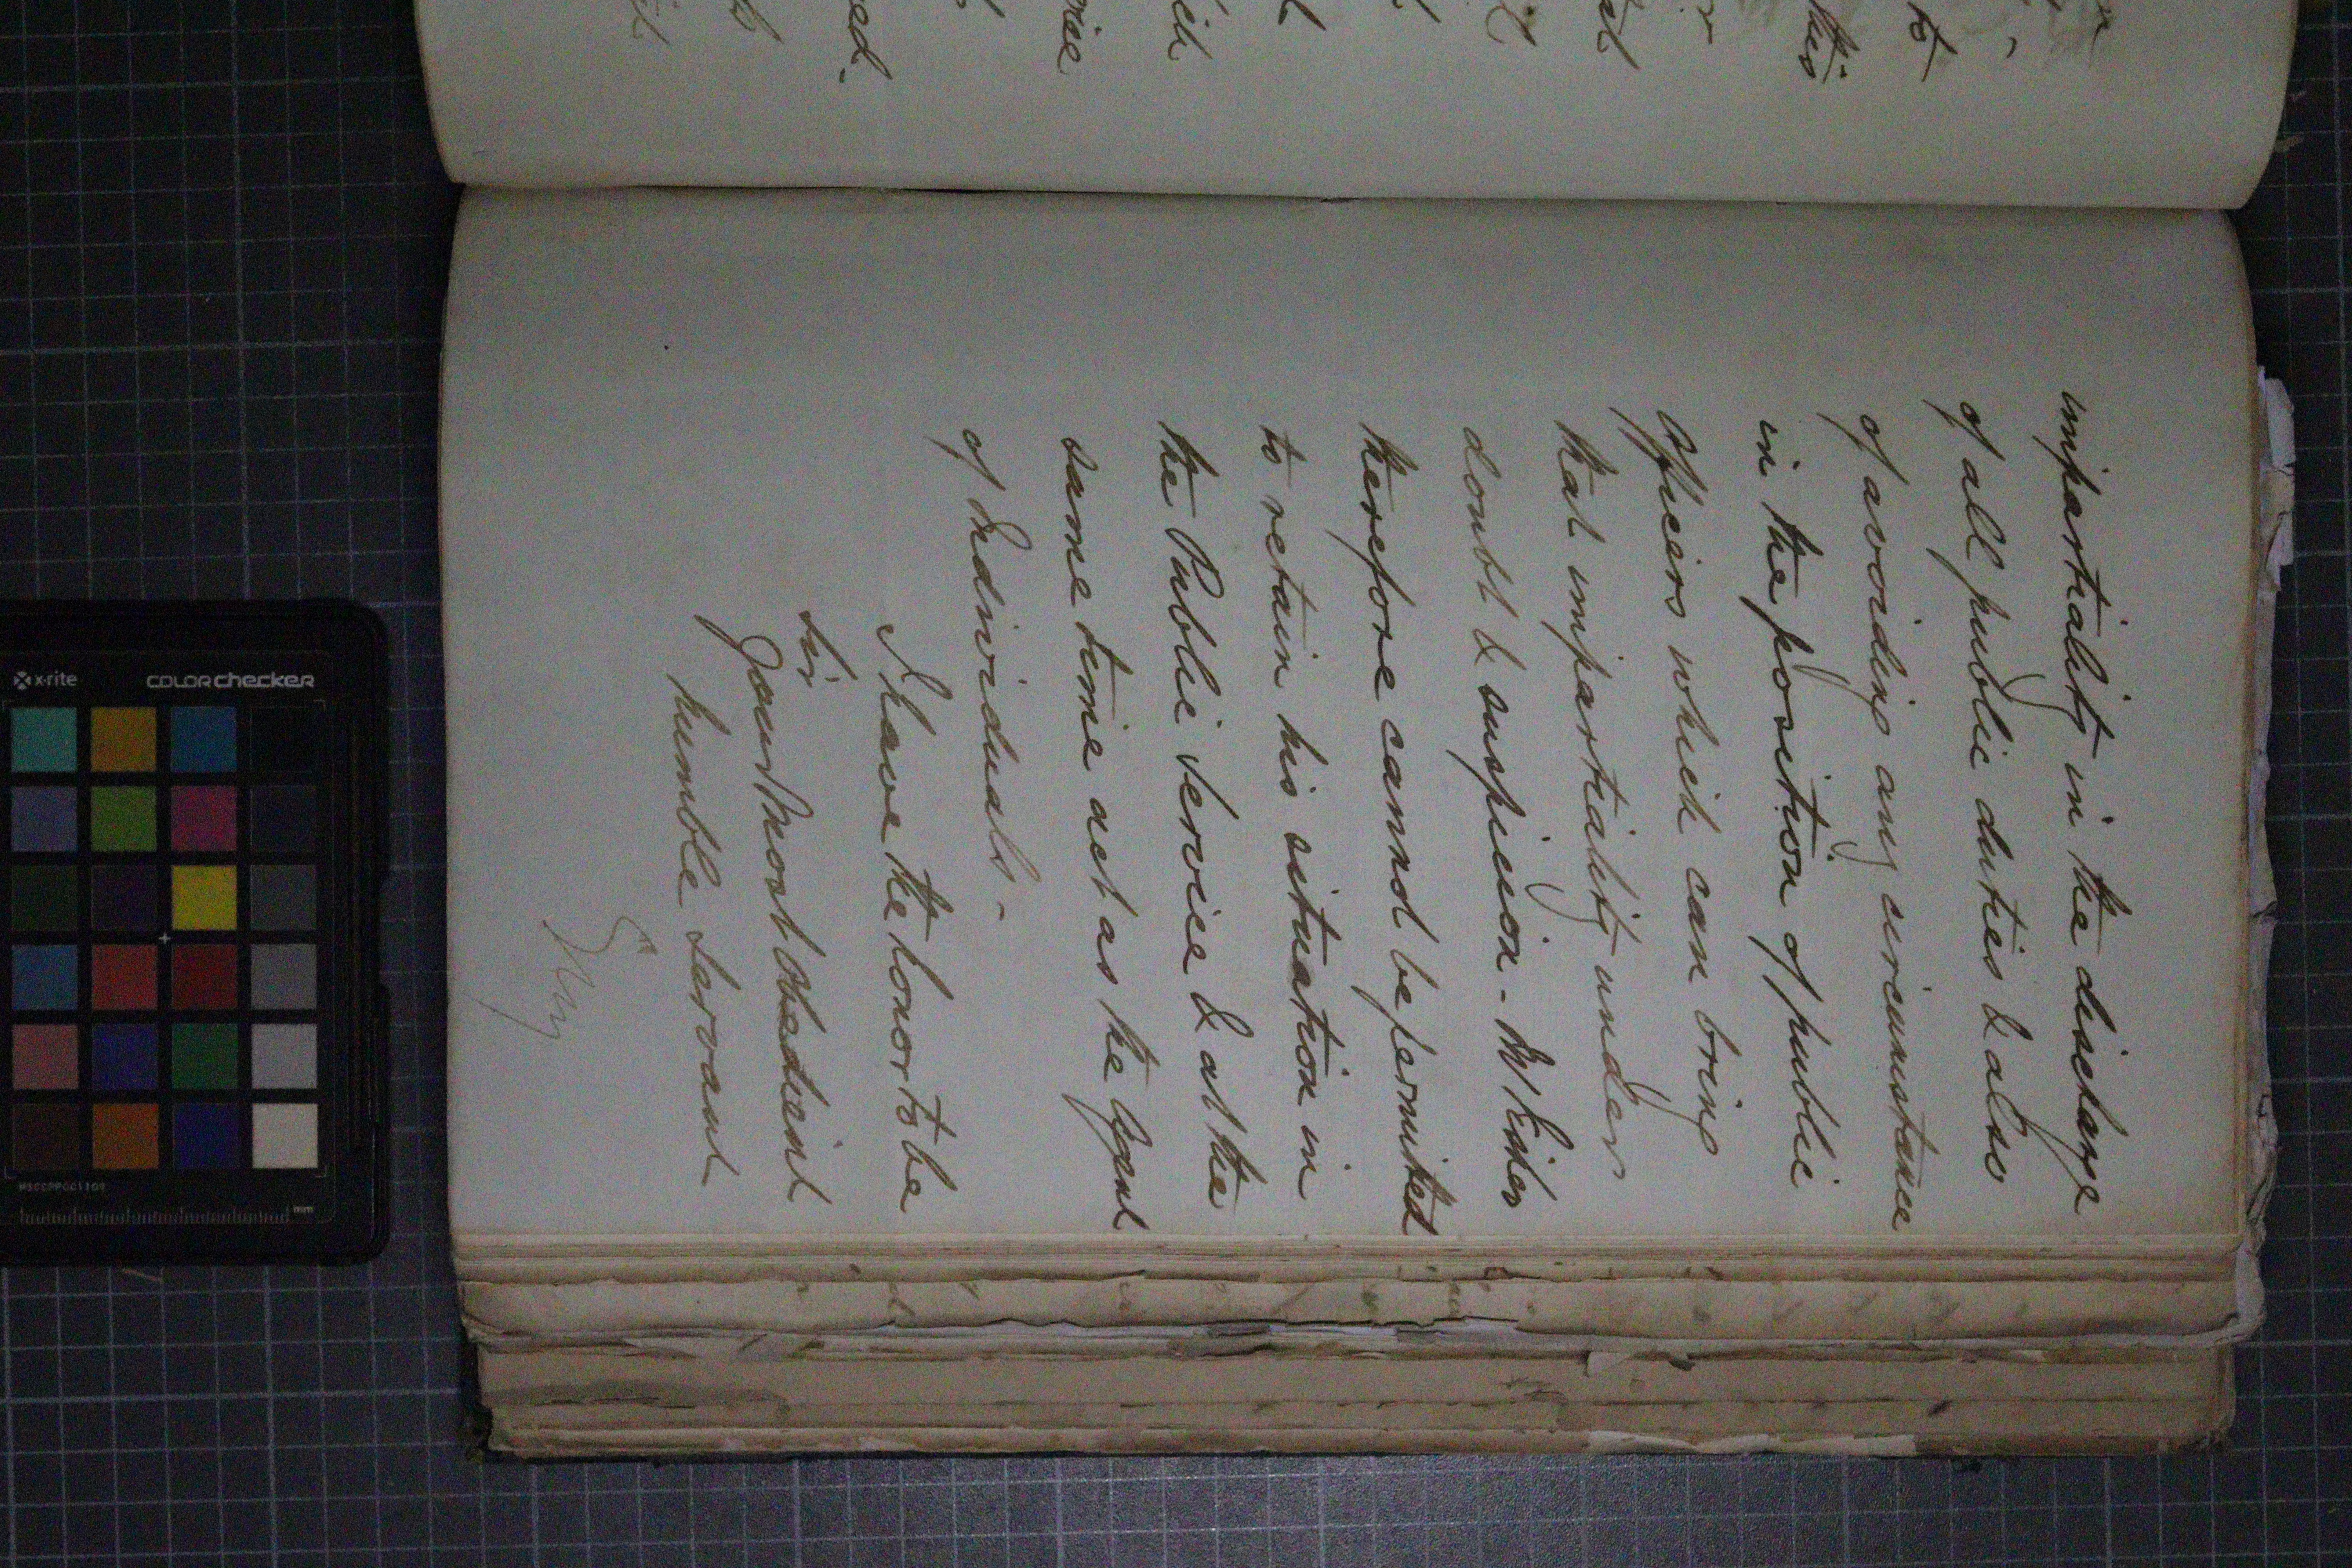 impartiality in the discharge
of all public duties & also
of avoiding any circumstance
in the position of public
Officers which can bring
that impartiality under
doubt & suspicion - Mr
therefore cannot be permitted
to retain his situation in
the Public Service & at the
same time act as the Agent
of Individuals. -
I have the honor to be
Sir
Your Most Obedient
humble Servant
x-rite colorchecker
MSCCPPCC1109
mm